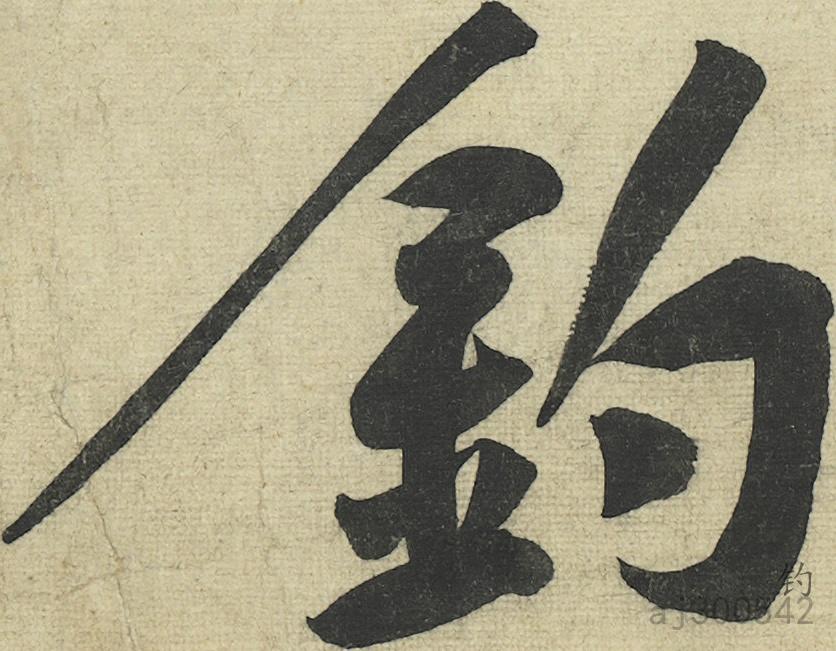 釣
钓
aj300542